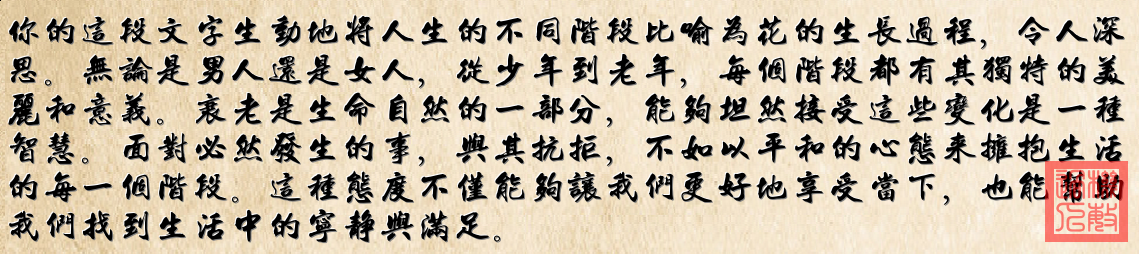 你的這段文字生動地將人生的不同階段比喻為花的生長過程，令人深
思。無論是男人還是女人，從少年到老年，每個階段都有其獨特的美
麗和意義。衰老是生命自然的一部分，能夠坦然接受這些變化是一種
智慧。面對必然發生的事，與其抗拒，不如以平和的心態來擁抱生活
的每一個階段。這種態度不僅能夠讓我們更好地享受當下，也能幫助
我們找到生活中的寧靜與滿足。